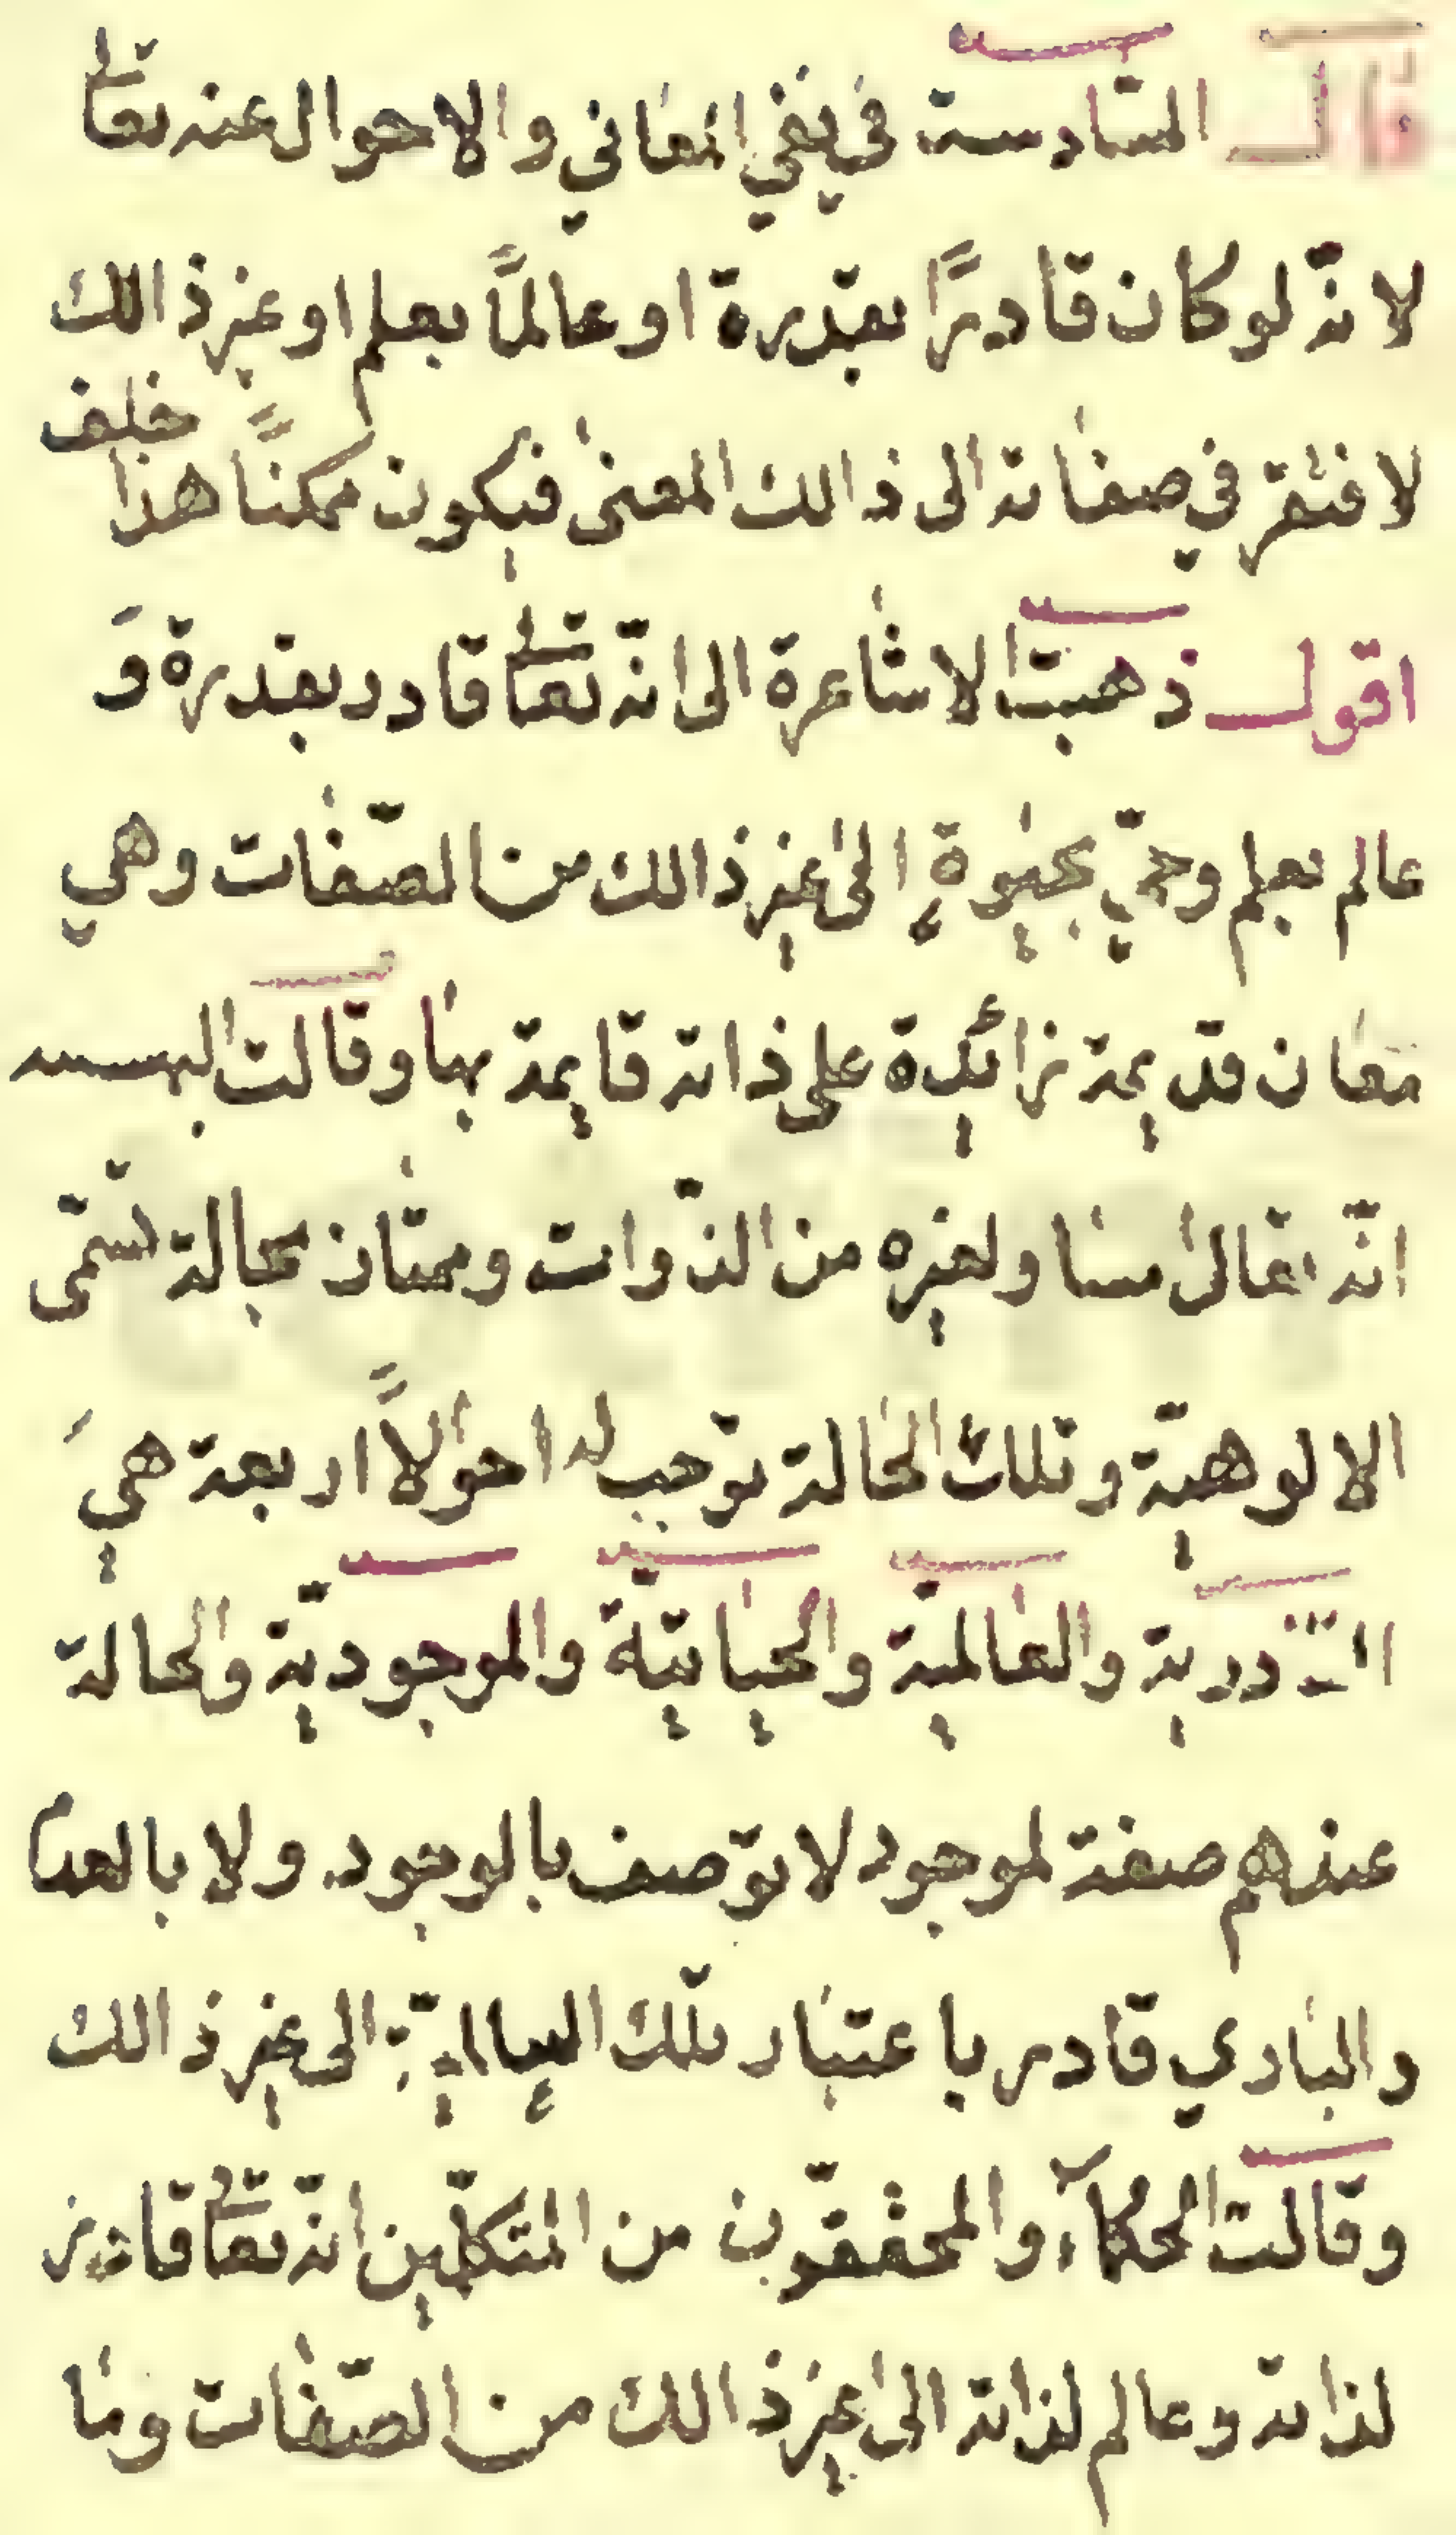 قال السّادسة في نفي المعاني والاحوال عنه تعالى
لانّه لو كان قادرًا بقدرة او عالمًا بعلم او غير ذالك
لافتقر في صفاته الى ذالك المعنى فيكون ممكنًا هذا خلف
اقول ذهبت الاشاعرة الى انّه تعالى قادر بقدرة وَ
عالم بعلم وحيّ بحيوةٍ الى غير ذالك من الصّفات وهي
معان قديمة زائدة على ذاته قايمة بها وقالت
انّه تعالى مساو لغيره من الذّوات وممتاز بحالة تسمّى
الالوهيّة وتلك الحالة توجب له احوالاً اربعة هيَ
القادرية والعالميّة والحياتيّة والموجوديّة والحالة
عندهم صفة لموجود لا توصف بالوجود ولا بالعدم
والباري قادر باعتبار تلك الى غير ذالك
وقالت الحكمآء والمحققّون من المتكلّمين انّه تعالى قادر
لذاته وعالم لذاته الى غير ذالك من الصّفات وما